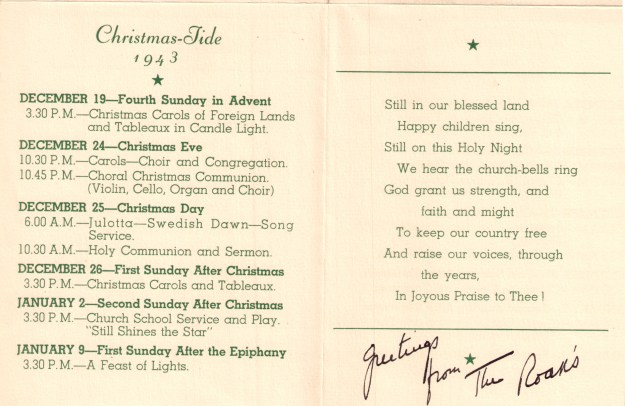 Christmas-Tide
1943
DECEMBER 19—Fourth Sunday in Advent
3.30 P.M.—Christmas Carols of Foreign Lands
and Tableaux in Candle Light.
DECEMBER 24—Christmas Eve
10.30 P.M.—Carols—Choir and Congregation.
10.45 P.M.—Choral Christmas Communion.
(Violin, Cello, Organ and Choir)
DECEMBER 25—Christmas Day
6.00 A.M.—Julotta—Swedish Dawn—Song
Service.
10.30 A.M.—Holy Communion and Sermon.
DECEMBER 26—First Sunday After Christmas
3.30 P.M.—Christmas Carols and Tableaux.
JANUARY 2—Second Sunday After Christmas
3.30 P.M.—Church School Service and Play.
"Still Shines the Star"
JANUARY 9—First Sunday After the Epiphany
3.30 P.M.—A Feast of Lights.
Still in our blessed land
Happy children sing,
Still on this Holy Night
We hear the church-bells ring
God grant us strength, and
faith and might
To keep our country free
And raise our voices, through
the years,
In Joyous Praise to Thee!
Greetings
from The Roak's